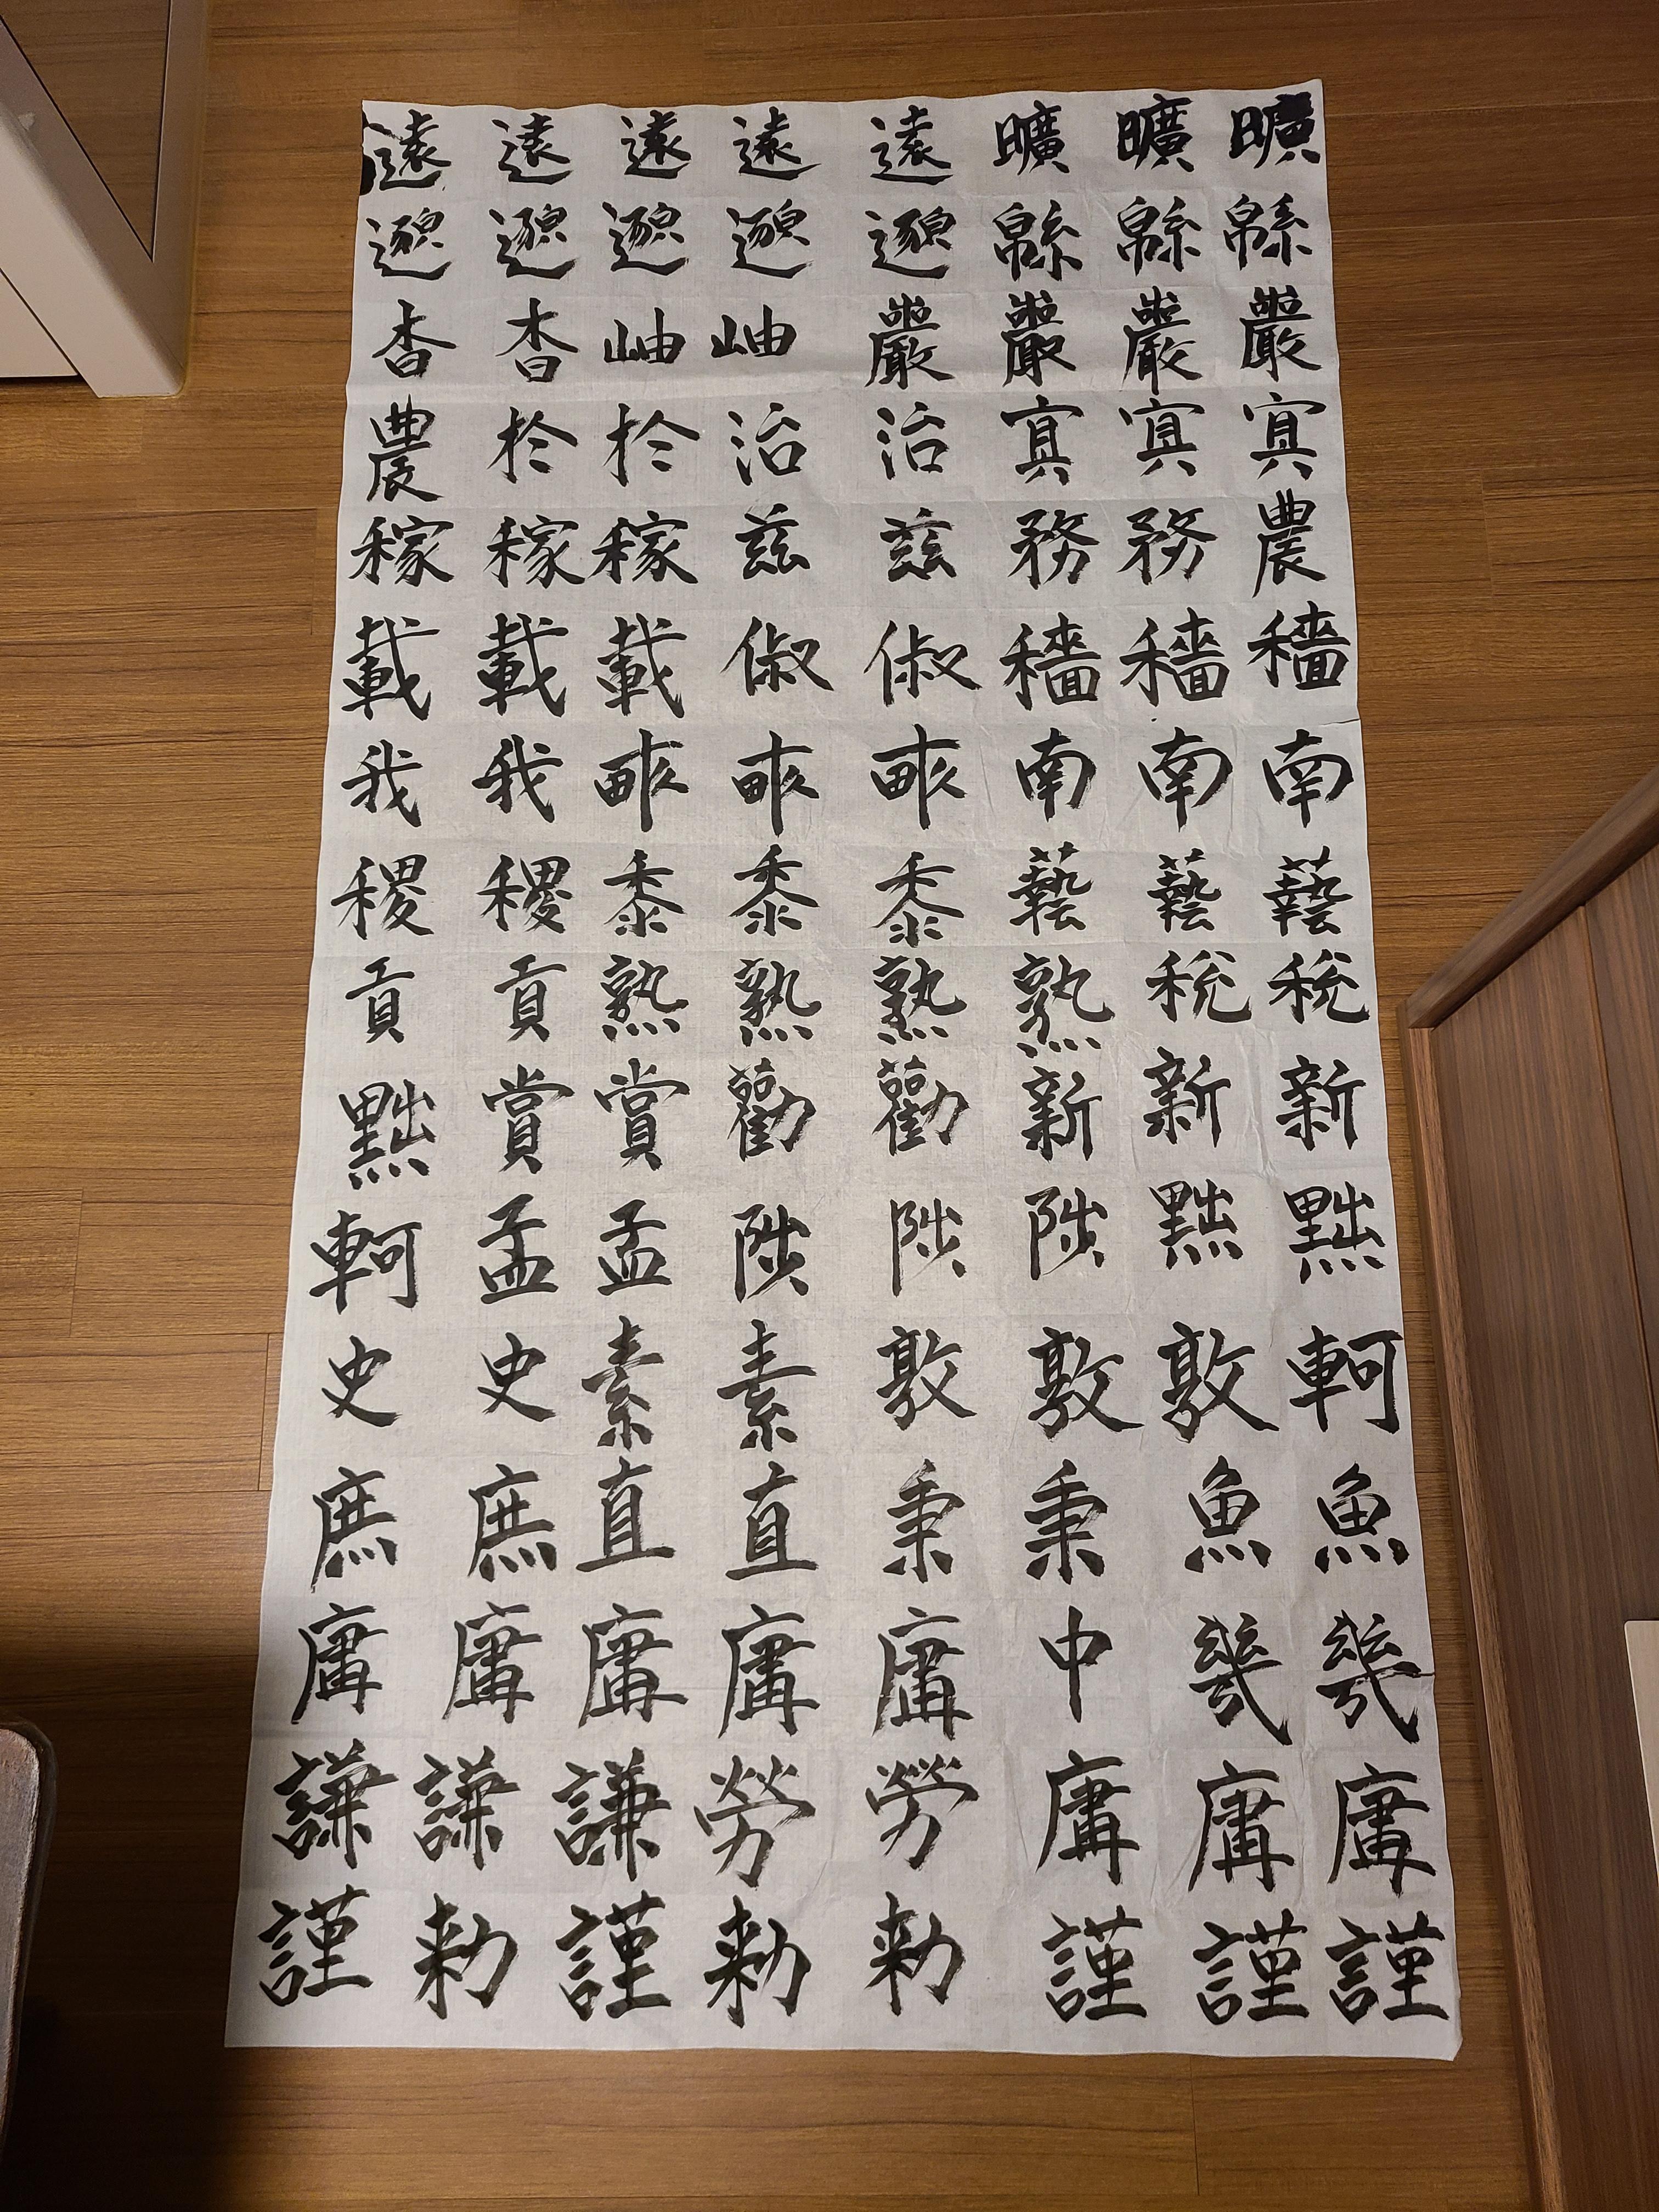 曠曠曠遠遠遠遠遠
緜緜緜邈邈邈邈邈
嚴嚴嚴嚴岫岫杳杳
冥冥冥治治於於農
農務務茲茲稼稼稼
穡穡穡俶俶載載載
南南南畝畝畝我我
藝藝藝黍黍黍稷稷
稅稅熟熟熟熟貢貢
新新新勸勸賞賞黜
黜黜陟陟陟孟孟軻
軻敦敦敦素素史史
魚魚秉秉直直庶庶
幾幾中庸庸庸庸庸
庸庸庸勞勞謙謙謙
謹謹謹勅勅謹勅謹